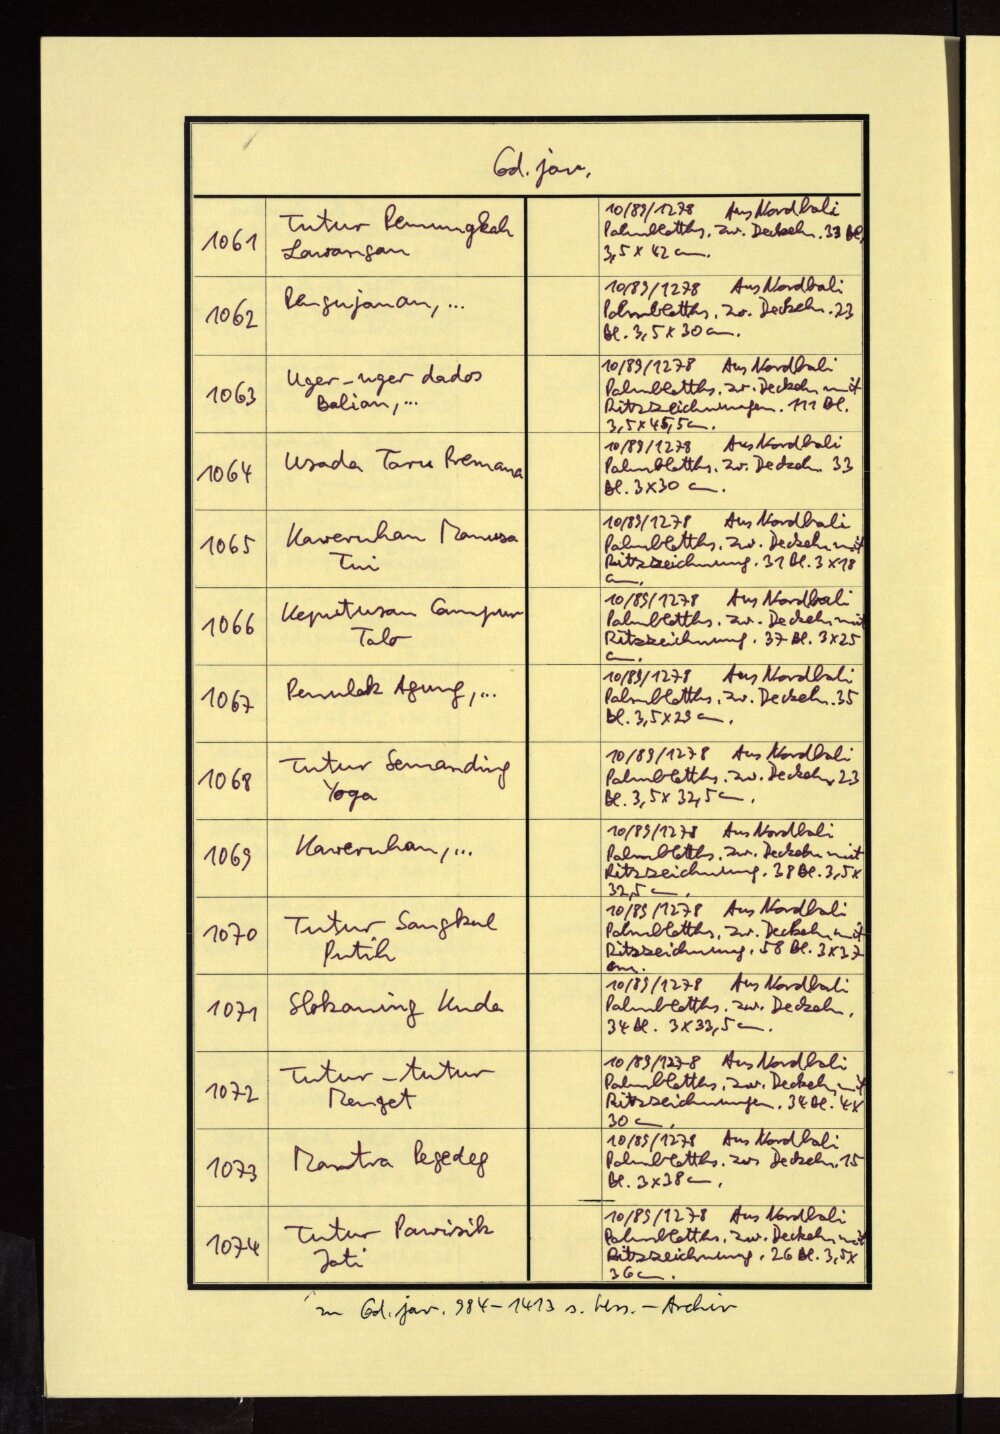 Cod. jav.
1061
Tutur Pemungkah
Lawangan
10/89/1278 Aus Nordbali
Palmblatths. zw. Deckeln. 33 Bl.
3,5 x 42 cm.
1062
Pengujanan, ...
10/89/1278 Aus Nordbali
Palmblatths. zw. Deckeln. 23
Bl. 3,5 x 30 cm.
1063
Uger-uger dados
Balian, ...
10/89/1278 Aus Nordbali
Palmblatths. zw. Deckeln mit
Ritzzeichnungen. 111 Bl.
3,5 x 45,5 cm.
1064
Usada Taru Premana
10/89/1278 Aus Nordbali
Palmblatths. zw. Deckeln. 33
Bl. 3 x 30 cm.
1065
Kaweruhan Manusa
10/89/1278 Aus Nordbali
Palmblatths. zw. Deckeln mit
Ritzzeichnung. 31 Bl. 3 x 18
cm.
1066
Keputusan Campur
Talo
10/89/1278 Aus Nordbali
Palmblatths. zw. Deckeln mit
Ritzzeichnung. 37 Bl. 3 x 25
cm.
1067
Penulak Agung, ...
10/89/1278 Aus Nordbali
Palmblatths. zw. Deckeln. 35
Bl. 3,5 x 29 cm.
1068
Tutur Semanding
Yoga
10/89/1278 Aus Nordbali
Palmblatths. zw. Deckeln. 23
Bl. 3,5 x 32,5 cm.
1069
Kaweruhan, ...
10/89/1278 Aus Nordbali
Palmblatths. zw. Deckeln mit
Ritzzeichnung. 38 Bl. 3,5 x
32,5 cm.
1070
Tutur Sangkul
Putih
10/89/1278 Aus Nordbali
Palmblatths. zw. Deckeln mit
Ritzzeichnung. 58 Bl. 3 x 37
cm.
1071
Slokaning Kuda
10/89/1278 Aus Nordbali
Palmblatths. zw. Deckeln.
34 Bl. 3 x 33,5 cm.
1072
Tutur-tutur
Menget
10/89/1278 Aus Nordbali
Palmblatths. zw. Deckeln mit
Ritzzeichnungen. 34 Bl. 4 x
30 cm.
1073
Mantra Pegedeg
10/89/1278 Aus Nordbali
Palmblatths. zw. Deckeln. 15
Bl. 3 x 38 cm.
1074
Tutur Pawisik
Jati
10/89/1278 Aus Nordbali
Palmblatths. zw. Deckeln mit
Ritzzeichnung. 26 Bl. 3,5 x
36 cm.
zu Cod. jav. 984-1413 s. Hss.-Archiv